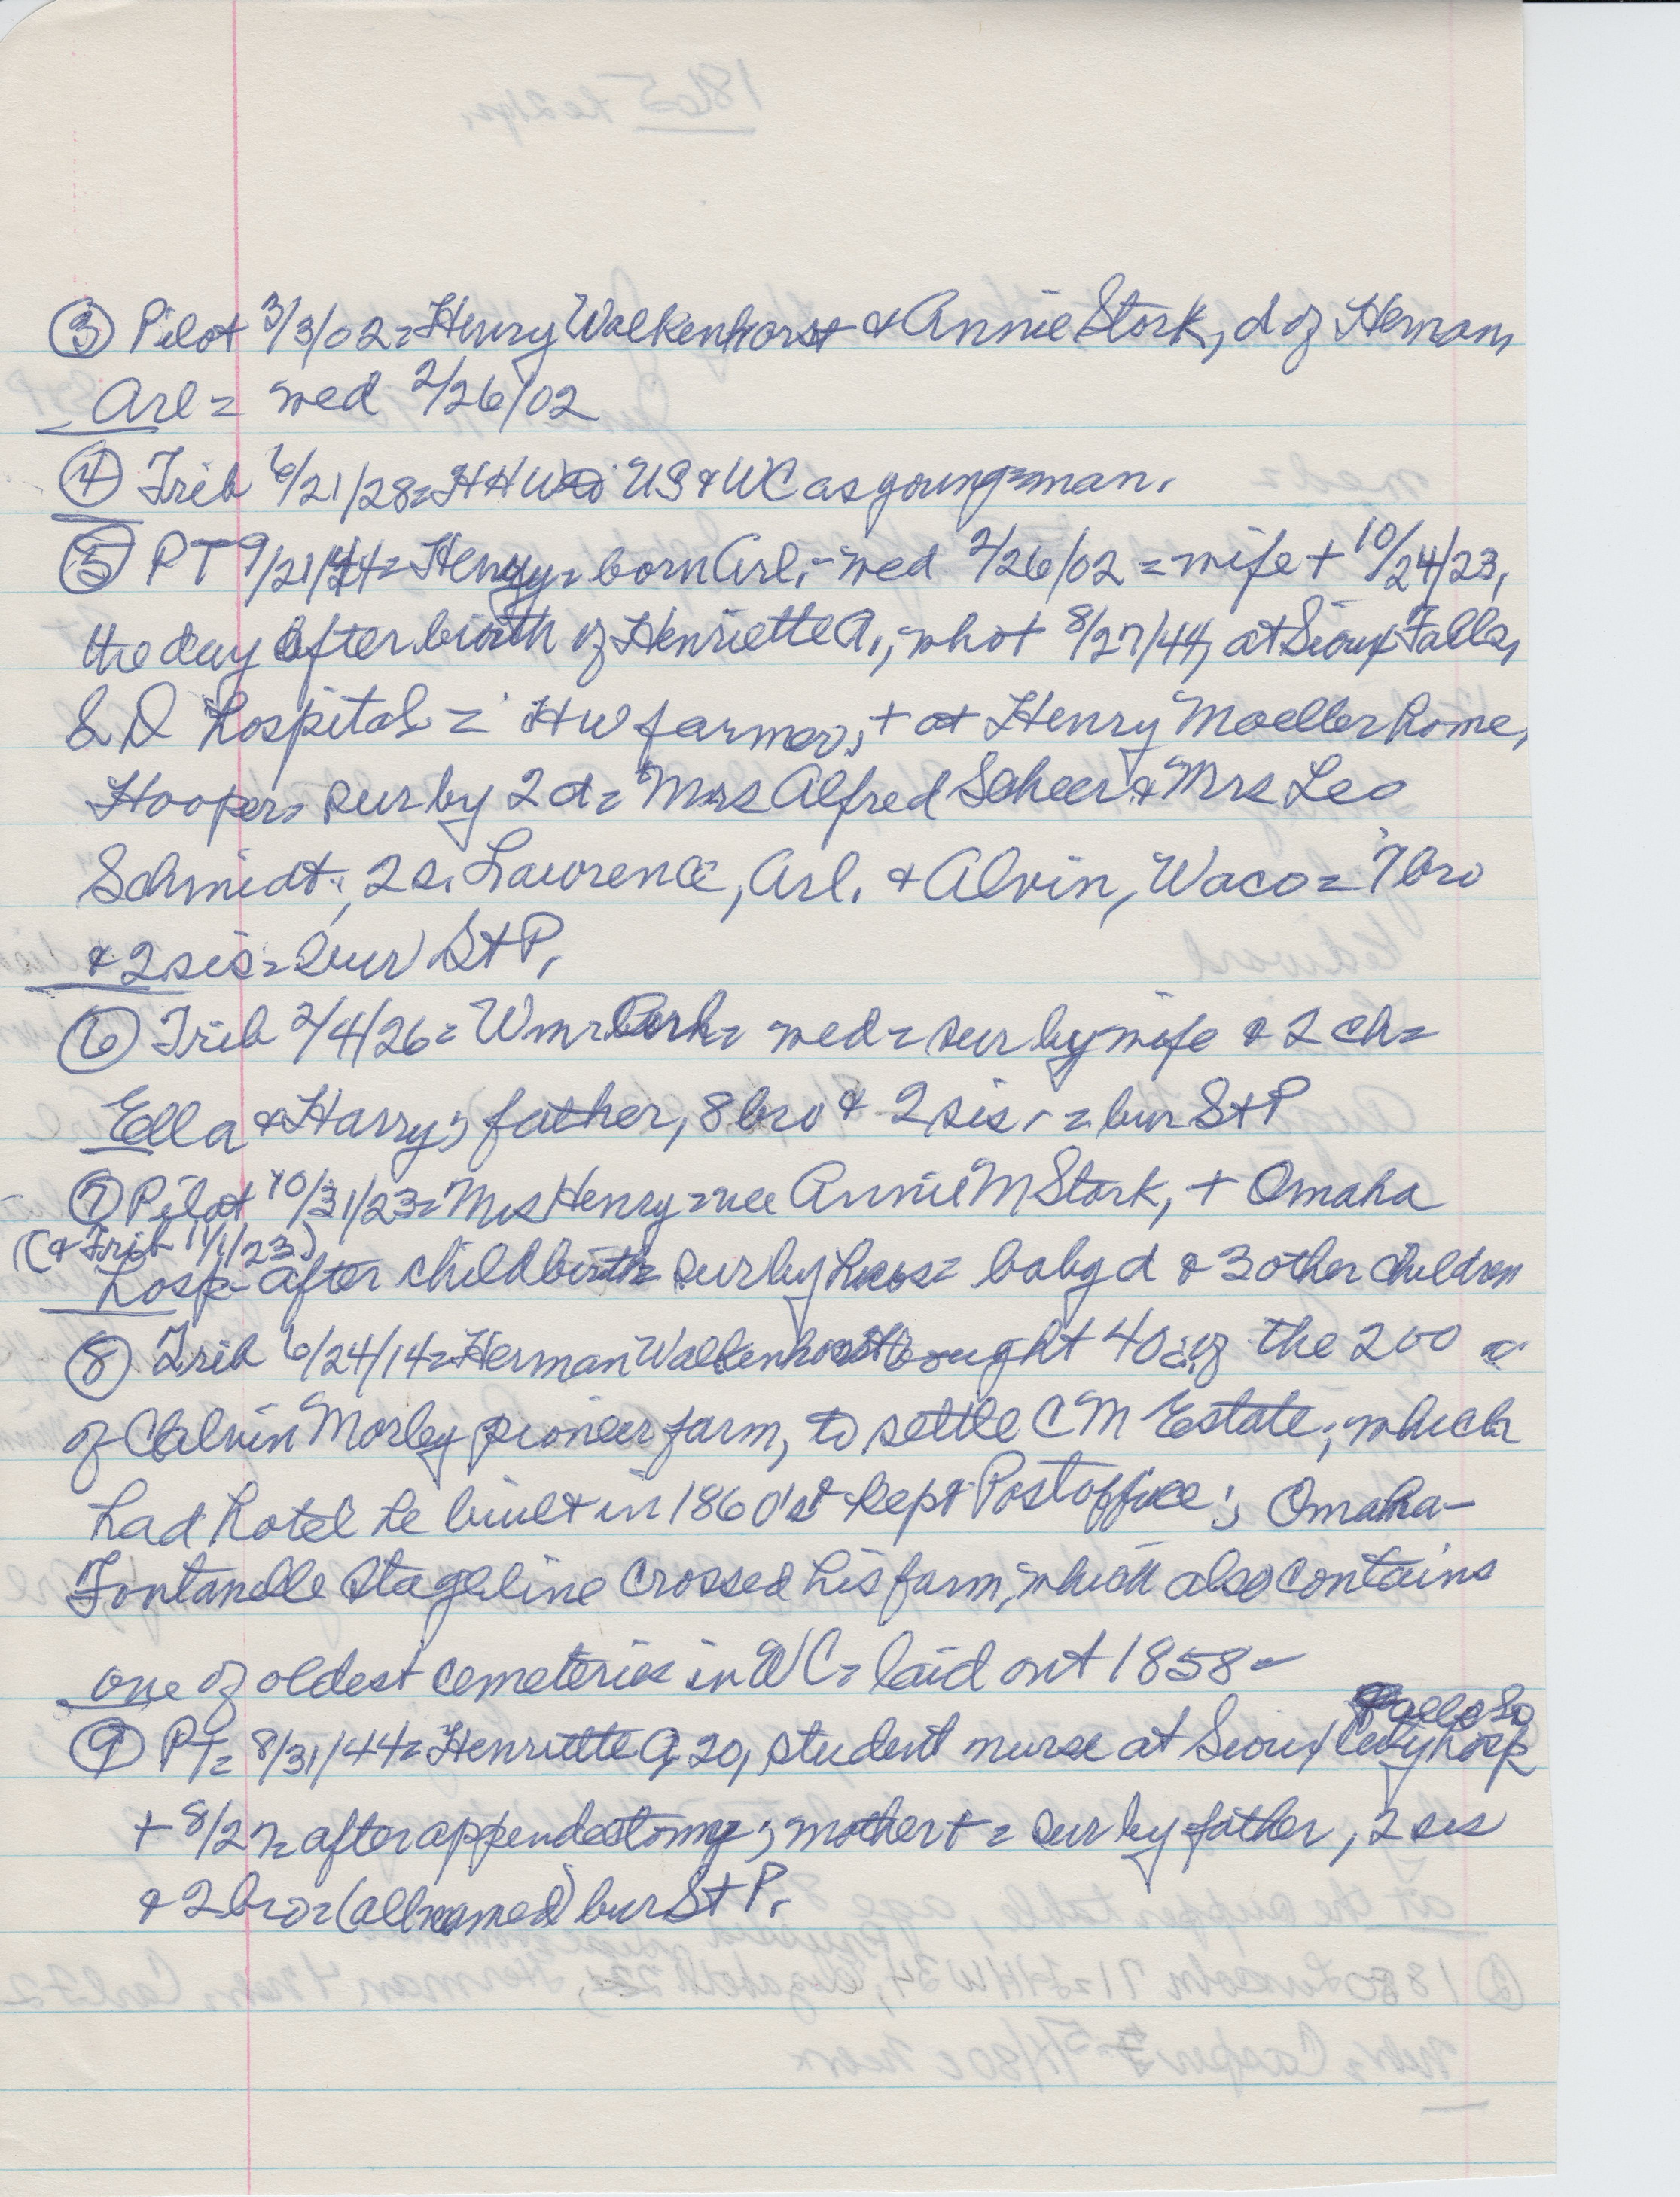 ③ Pilot 3/3/02 = Henry Walkenhorst & Annie Stork, d of Herman,
Arl = med 2/26/02
④ Trib 6/21/28 = HHW to US & WC as young man.
⑤ PT 9/21/44 = Henry = born Arl. - med 2/26/02 = wife + 10/24/23,
the day after birth of Henriette A., who + 8/27/44, at Sioux Falls,
S D hospital = HW farmer, + at Henry Moeller home,
Hooper = sur by 2 d = Mrs Alfred Scheer & Mrs Leo
Schmidt; 2 s. Lawrence, Arl. & Alvin, Waco = 7 bro
& 2 sis = bur St P.
⑥ Trib 2/4/26 = Wm = = med = sur by wife & 2 ch =
Ella & Harry; father, 8 bro & 2 sis. = bur St P
⑦ Pilot 10/31/23 = Mrs Henry = nee Annie M Stork, + Omaha
(& Trib 11/1/23)
hosp - after childbirth = sur by hus = baby d & 3 other children
⑧ Trib 6/24/14 = Herman Walkenhorst bought 40 a. of the 200 a
of Calvin Morley pioneer farm, to settle C M Estate; which
had hotel he built in 1860's & kept Postoffice; Omaha-
Fontanelle Stageline crossed his farm, which also contains
one of oldest cemeteries in WC = laid out 1858 -
⑨ PT = 8/31/44 = Henriette A, 20, student nurse at Sioux City hosp
Falls SD
+ 8/27 = after appendectomy; mother + = sur by father, 2 sis
& 2 bro = (all named) bur St P.